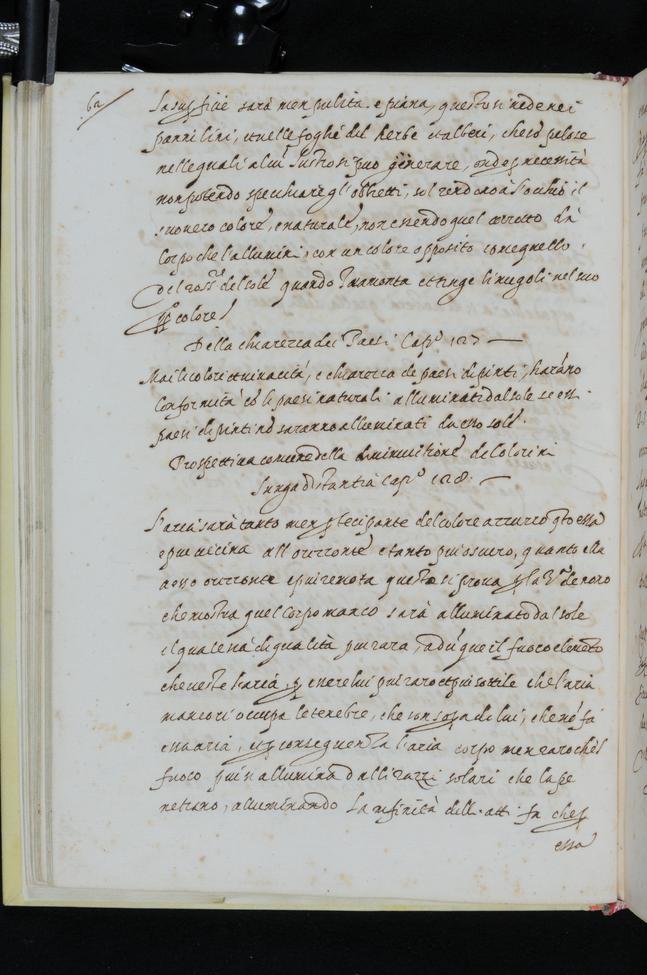 62
la sup.fitie sarà men pulita e piana, questo si vede nei
panni lini, et nelle foghe del herbe et alberi, che sò pelose
nelle quali alcu lustro si puo generare, onde p necessità
non potendo spechiare gl'obbietti, sol rendono à l'ochio il
suo vero colore, e naturale, non essendo quel corroto da
corpo che l'allumini, con un colore opposito come quello
del ross.re del sole quando tramonta et tinge li nugoli nel suo
pp colore
Della chiarezza dei Paesi Cap.o 127
Mai li colori et vivacità, e chiarezza de paesi dipinti, harano
conformità cò li paesi naturali alluminati dal sole se essi
paesi dipinti nò saranno alluminati da esso sole.
Prospettiva comune della diminuitione de Colori in
lunga distantia Cap.o 128.
L'aria sarà tanto men ptecipante del colore azzurro qto essa
e piu vicina all'orizonte e tanto piu oscuro, quanto ella
a esso orizonte e piu remota questo si prova p la 3.a del nono
che mostra quel corpo manco sarà alluminato dal sole
il quale sia di qualità piu rara, adùque il fuoco elemèto
che veste l'aria, p essere lui piu raro et piu sottile che l'aria
manco ci occupa le tenebre, che son sopa de lui, che nò fà
essa aria, et p conseguenza l'aria corpo men raro che'l
fuoco piu s'allumina dalli razzi solari che la pe
netrano, alluminando la infinità delli atti fn che p
essa